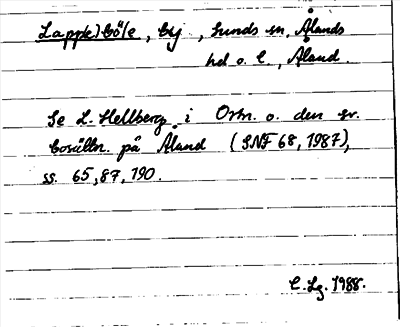 Lapp(e)böle, by, Sunds sn, Ålands
hd o. l., Åland.
Se L. Hellberg i Ortn. o. den sv.
bosättn. på Åland (SNF 68, 1987),
ss. 65, 87, 190.
C. Lg. 1988.